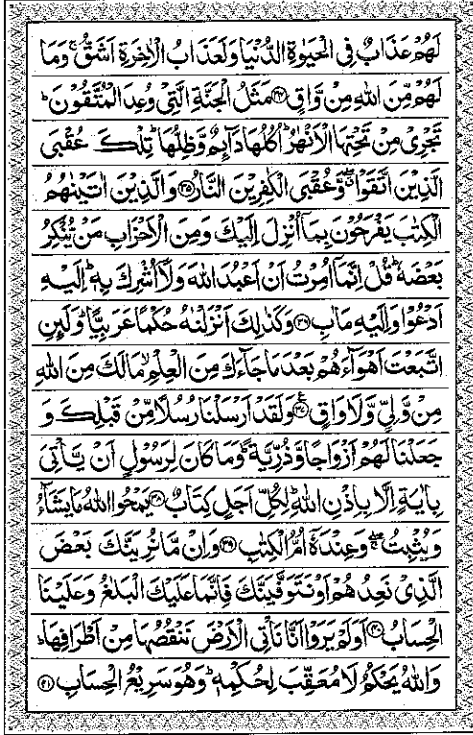 لَهُمْ عَذَابٌ فِي الْحَيٰوةِ الدُّنْيَا وَلَعَذَابُ الْاٰخِرَةِ اَشَقُّ ۚ وَمَا
لَهُمْ مِّنَ اللّٰهِ مِنْ وَّاقٍ ﴿۳۴﴾ مَثَلُ الْجَنَّةِ الَّتِيْ وُعِدَ الْمُتَّقُوْنَ ؕ
تَجْرِيْ مِنْ تَحْتِهَا الْاَنْهٰرُ ؕ اُكُلُهَا دَآئِمٌ وَّظِلُّهَا ؕ تِلْكَ عُقْبَى
الَّذِيْنَ اتَّقَوْا ۖ وَّعُقْبَى الْكٰفِرِيْنَ النَّارُ ﴿۳۵﴾ وَالَّذِيْنَ اٰتَيْنٰهُمُ
الْكِتٰبَ يَفْرَحُوْنَ بِمَاۤ اُنْزِلَ اِلَيْكَ وَمِنَ الْاَحْزَابِ مَنْ يُّنْكِرُ
بَعْضَهٗ ؕ قُلْ اِنَّمَاۤ اُمِرْتُ اَنْ اَعْبُدَ اللّٰهَ وَلَاۤ اُشْرِكَ بِهٖ ؕ اِلَيْهِ
اَدْعُوْا وَاِلَيْهِ مَاٰبِ ﴿۳۶﴾ وَكَذٰلِكَ اَنْزَلْنٰهُ حُكْمًا عَرَبِيًّا ؕ وَلَئِنِ
اتَّبَعْتَ اَهْوَآءَهُمْ بَعْدَ مَا جَآءَكَ مِنَ الْعِلْمِ ۙ مَا لَكَ مِنَ اللّٰهِ
مِنْ وَّلِيٍّ وَّلَا وَاقٍ ﴿۳۷﴾ وَلَقَدْ اَرْسَلْنَا رُسُلًا مِّنْ قَبْلِكَ وَ
جَعَلْنَا لَهُمْ اَزْوَاجًا وَّذُرِّيَّةً ؕ وَمَا كَانَ لِرَسُوْلٍ اَنْ يَّاْتِيَ
بِاٰيَةٍ اِلَّا بِاِذْنِ اللّٰهِ ؕ لِكُلِّ اَجَلٍ كِتَابٌ ﴿۳۸﴾ يَمْحُوا اللّٰهُ مَا يَشَآءُ
وَيُثْبِتُ ۖ وَعِنْدَهٗۤ اُمُّ الْكِتٰبِ ﴿۳۹﴾ وَاِنْ مَّا نُرِيَنَّكَ بَعْضَ
الَّذِيْ نَعِدُهُمْ اَوْ نَتَوَفَّيَنَّكَ فَاِنَّمَا عَلَيْكَ الْبَلٰغُ وَعَلَيْنَا
الْحِسَابُ ﴿۴۰﴾ اَوَلَمْ يَرَوْا اَنَّا نَاْتِي الْاَرْضَ نَنْقُصُهَا مِنْ اَطْرَافِهَا ؕ
وَاللّٰهُ يَحْكُمُ لَا مُعَقِّبَ لِحُكْمِهٖ ؕ وَهُوَ سَرِيْعُ الْحِسَابِ ﴿۴۱﴾